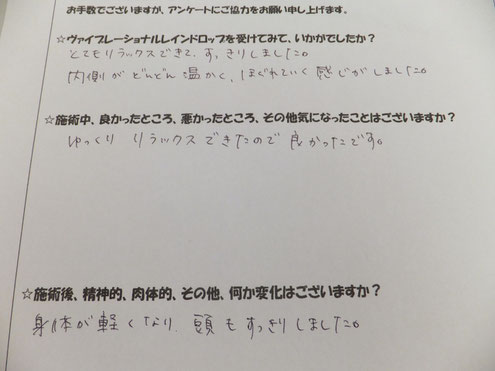 お手数でございますが、アンケートにご協力をお願い申し上げます。
☆ヴァイブレーショナルレインドロップを受けてみて、いかがでしたか？
とてもリラックスできて、すっきりしました。
内側がどんどん温かく、ほぐれていく感じがしました。
☆施術中、良かったところ、悪かったところ、その他気になったことはございますか？
ゆっくりリラックスできたので良かったです。
☆施術後、精神的、肉体的、その他、何か変化はございますか？
身体が軽くなり、頭もすっきりしました。